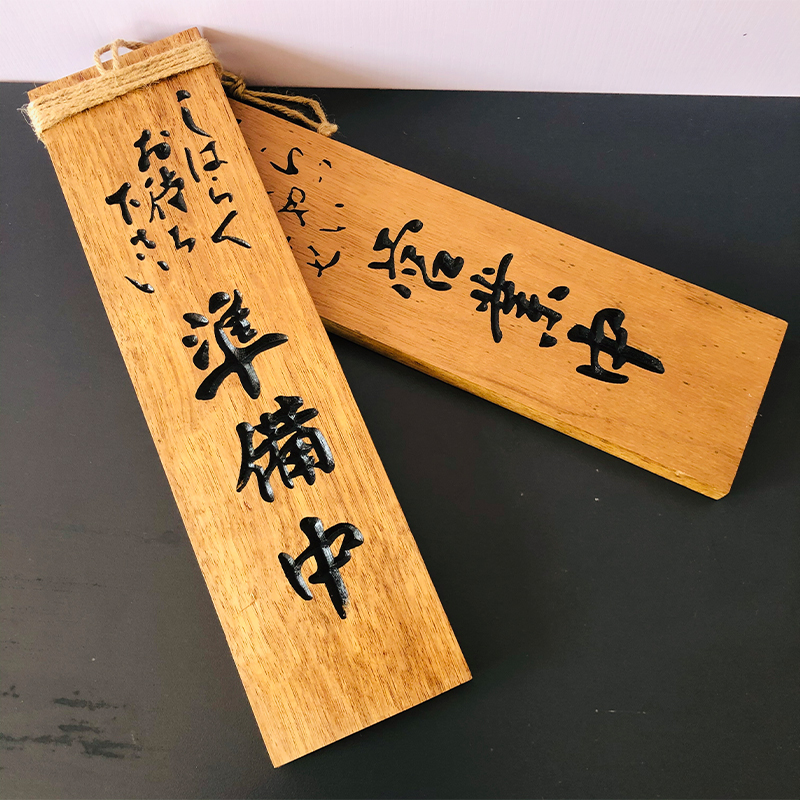 しばらく
お待ち
下さい
準備中
いらっ
しゃい
ませ
営業中